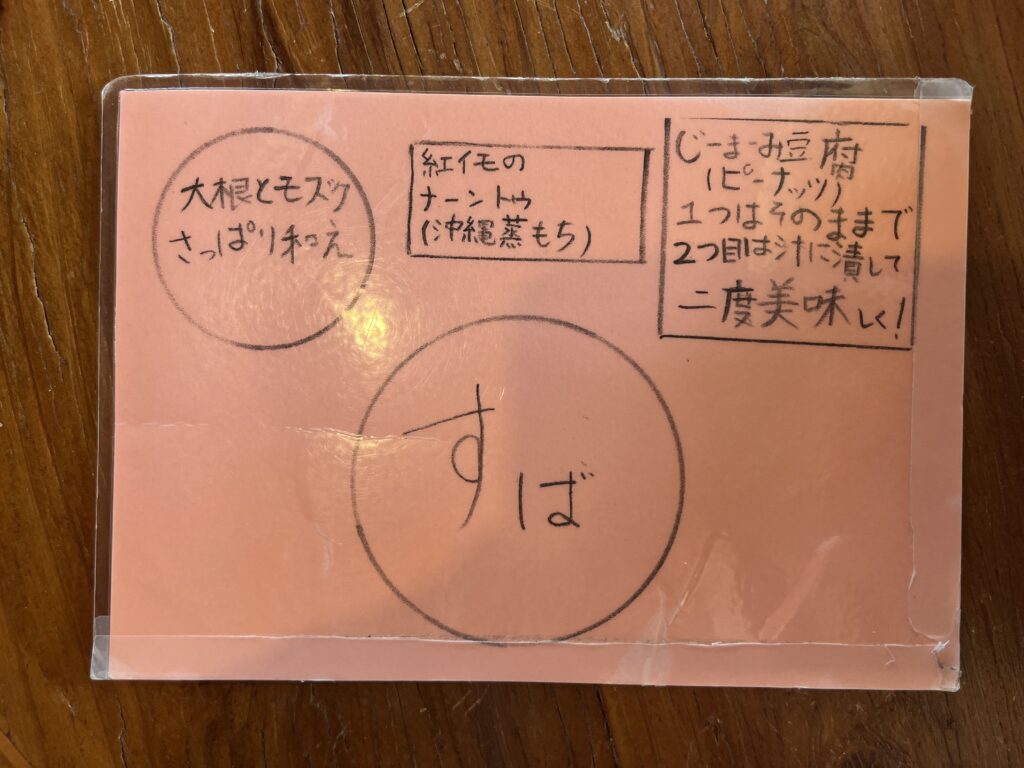 大根とモズク
さっぱり和え
紅イモの
ナーントゥ
(沖縄蒸もち)
じーまーみ豆腐
(ピーナッツ)
1つはそのままで
2つ目は汁に漬して
二度美味しく!
すば